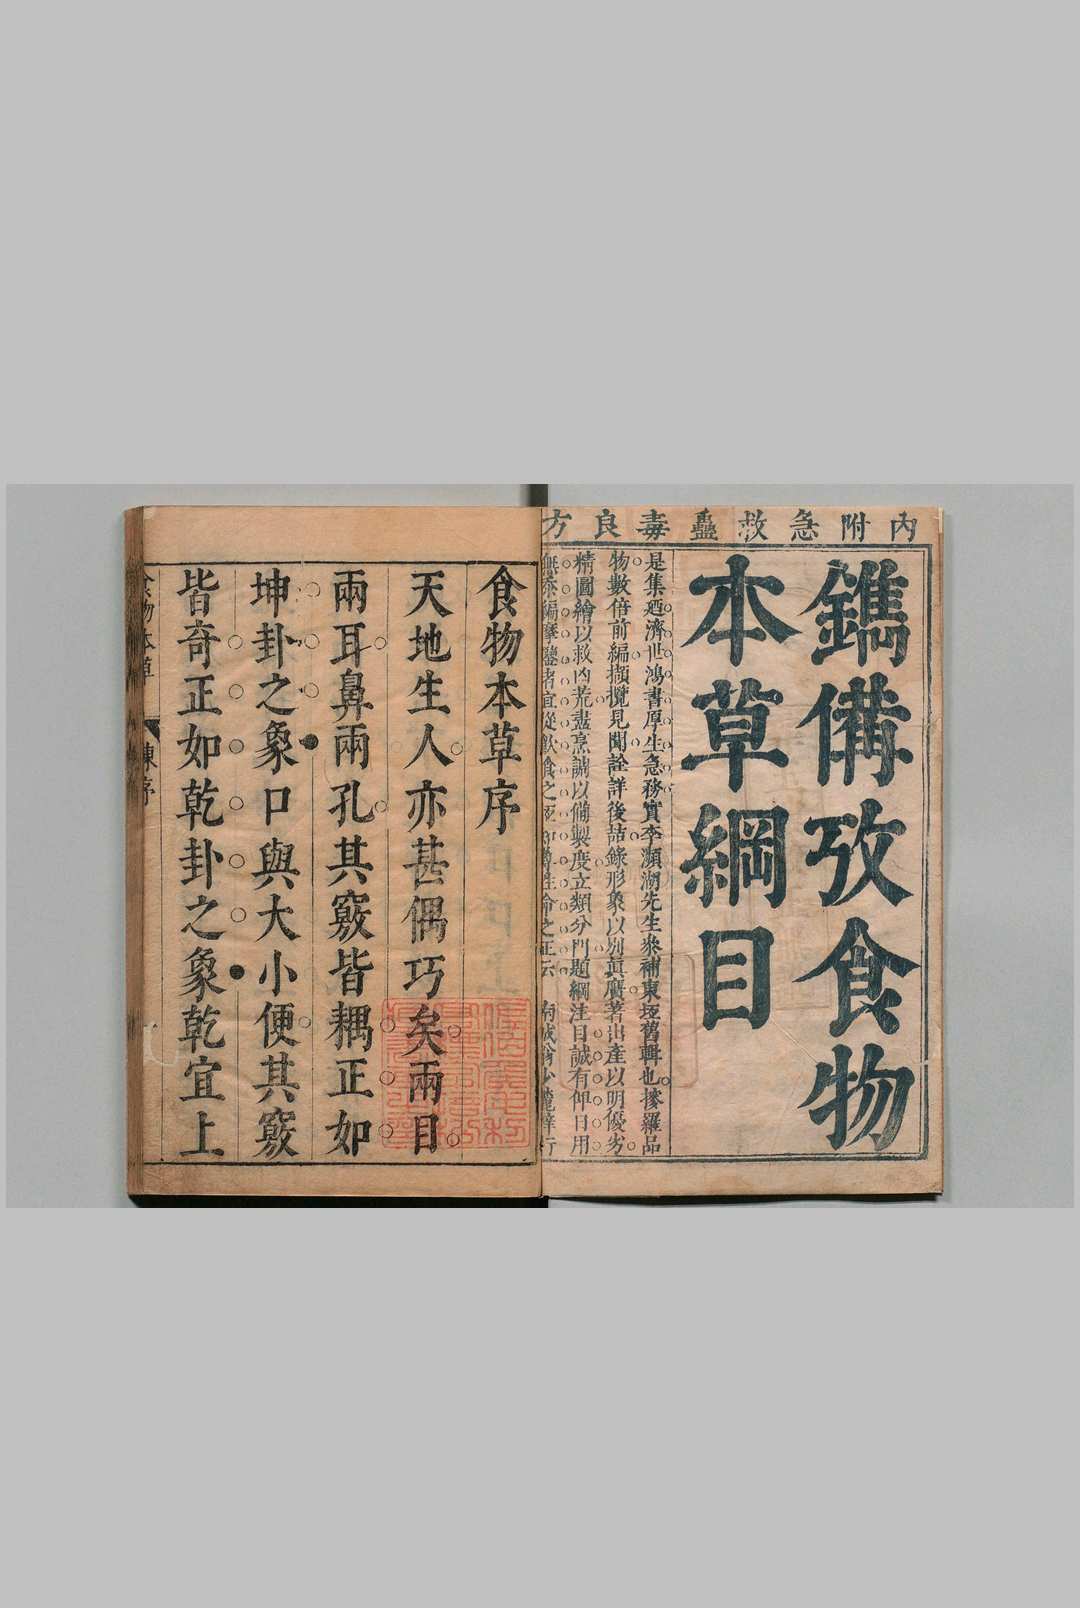 內附急救蠱毒良方
鐫備攷食物
本草綱目
是集廼濟世鴻書厚生急務實李瀕湖先生叅補東垣舊輯也摉羅品
物數倍前編擷攬見聞詮詳後詰錄形象以別眞廣著出產以明優劣
精圖繪以救凶荒盡烹調以備製度立類分門題綱注目誠有俾日用
食物本草序
天地生人亦甚偶巧矣兩目
兩耳鼻兩孔其竅皆耦正如
坤卦之象口與大小便其竅
皆奇正如乾卦之象乾宜上
食物本草 陳序